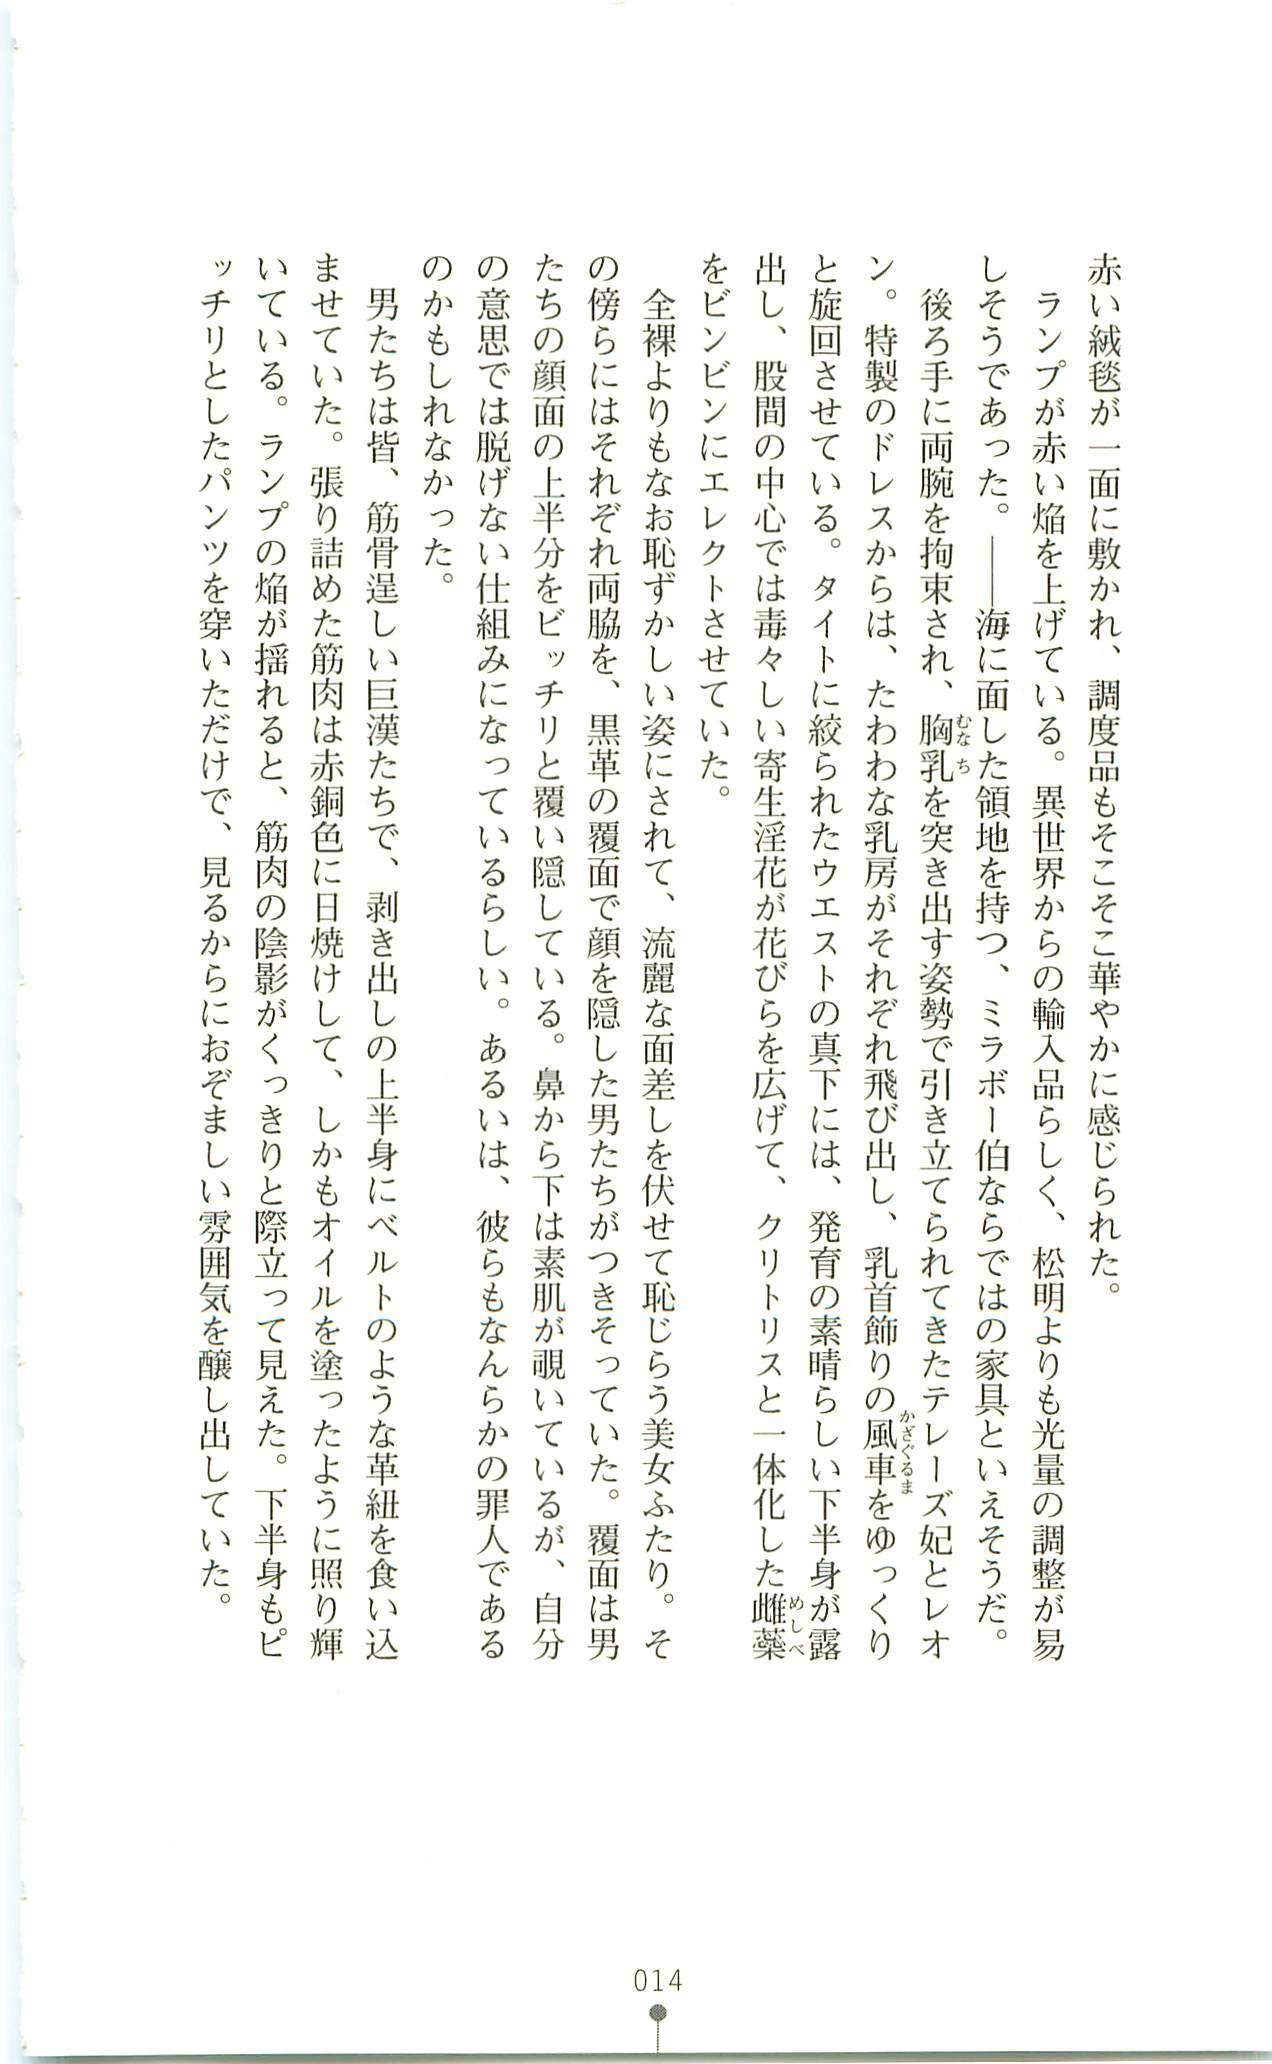 赤い絨毯が一面に敷かれ、調度品もそこそこ華やかに感じられた。
ランプが赤い焔を上げている。異世界からの輸入品らしく、松明よりも光量の調整が易
しそうであった。――海に面した領地を持つ、ミラボー伯ならではの家具といえそうだ。
後ろ手に両腕を拘束され、胸乳を突き出す姿勢で引き立てられてきたテレーズ妃とレオ
むなち
ン。特製のドレスからは、たわわな乳房がそれぞれ飛び出し、乳首飾りの風車をゆっくり
かざぐるま
と旋回させている。タイトに絞られたウエストの真下には、発育の素晴らしい下半身が露
出し、股間の中心では毒々しい寄生淫花が花びらを広げて、クリトリスと一体化した雌蘂
めしべ
をビンビンにエレクトさせていた。
全裸よりもなお恥ずかしい姿にされて、流麗な面差しを伏せて恥じらう美女ふたり。そ
の傍らにはそれぞれ両脇を、黒革の覆面で顔を隠した男たちがつきそっていた。覆面は男
たちの顔面の上半分をビッチリと覆い隠している。鼻から下は素肌が覗いているが、自分
の意思では脱げない仕組みになっているらしい。あるいは、彼らもなんらかの罪人である
のかもしれなかった。
男たちは皆、筋骨逞しい巨漢たちで、剥き出しの上半身にベルトのような革紐を食い込
ませていた。張り詰めた筋肉は赤銅色に日焼けして、しかもオイルを塗ったように照り輝
いている。ランプの焔が揺れると、筋肉の陰影がくっきりと際立って見えた。下半身もピ
ッチリとしたパンツを穿いただけで、見るからにおぞましい雰囲気を醸し出していた。
014